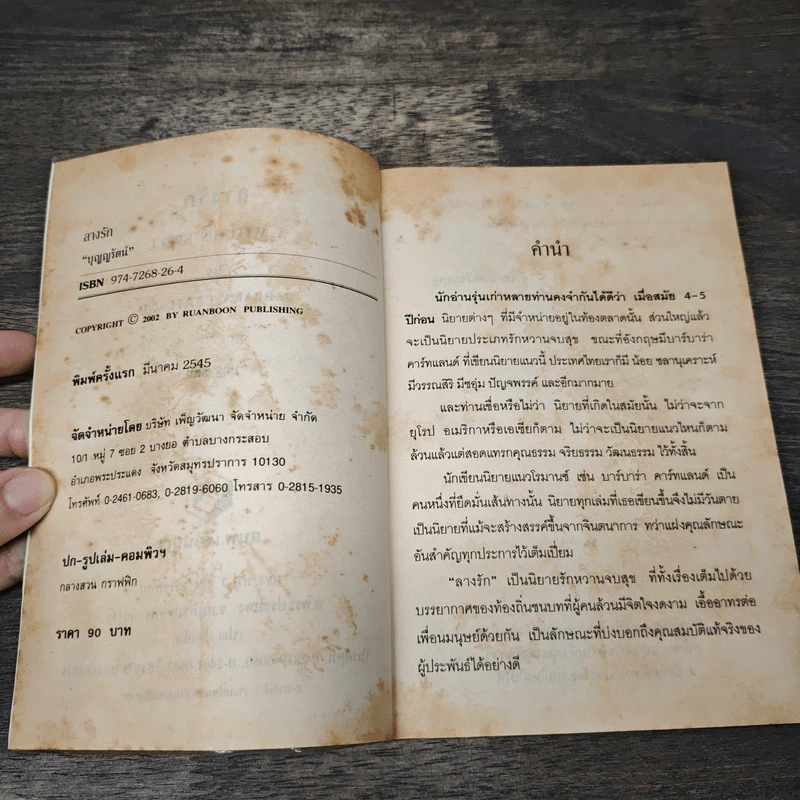 ลางรัก
"บุญญรัตน์"
ISBN 974-7268-26-4
COPYRIGHT © 2002 BY RUANBOON PUBLISHING
พิมพ์ครั้งแรก มีนาคม 2545
จัดจำหน่ายโดย บริษัท เพ็ญวัฒนา จัดจำหน่าย จำกัด
10/1 หมู่ 7 ซอย 2 บางยอ ตำบลบางกระสอบ
อำเภอพระประแดง จังหวัดสมุทรปราการ 10130
โทรศัพท์ 0-2461-0683, 0-2819-6060 โทรสาร 0-2815-1935
ปก-รูปเล่ม-คอมพิวฯ
กลางสวน กราฟฟิก
ราคา 90 บาท
คำนำ
นักอ่านรุ่นเก่าหลายท่านคงจำกันได้ดีว่า เมื่อสมัย 4-5
ปีก่อน นิยายต่างๆ ที่มีจำหน่ายอยู่ในท้องตลาดนั้น ส่วนใหญ่แล้ว
จะเป็นนิยายประเภทรักหวานจบสุข ขณะที่อังกฤษมีบาร์บาร่า
คาร์ทแลนด์ ที่เขียนนิยายแนวนี้ ประเทศไทยเราก็มี น้อย ชลานุเคราะห์
มีวรรณสิริ มีชอุ่ม ปัญจพรรค์ และอีกมากมาย
และท่านเชื่อหรือไม่ว่า นิยายที่เกิดในสมัยนั้น ไม่ว่าจะจาก
ยุโรป อเมริกาหรือเอเซียก็ตาม ไม่ว่าจะเป็นนิยายแนวไหนก็ตาม
ล้วนแล้วแต่สอดแทรกคุณธรรม จริยธรรม วัฒนธรรม ไว้ทั้งสิ้น
นักเขียนนิยายแนวโรมานซ์ เช่น บาร์บาร่า คาร์ทแลนด์ เป็น
คนหนึ่งที่ยึดมั่นเส้นทางนั้น นิยายทุกเล่มที่เธอเขียนขึ้นจึงไม่มีวันตาย
เป็นนิยายที่แม้จะสร้างสรรค์ขึ้นจากจินตนาการ ทว่าแฝงคุณลักษณะ
อันสำคัญทุกประการไว้เต็มเปี่ยม
"ลางรัก" เป็นนิยายรักหวานจบสุข ที่ทั้งเรื่องเต็มไปด้วย
บรรยากาศของท้องถิ่นชนบทที่ผู้คนล้วนมีจิตใจงดงาม เอื้ออาทรต่อ
เพื่อนมนุษย์ด้วยกัน เป็นลักษณะที่บ่งบอกถึงคุณสมบัติแท้จริงของ
ผู้ประพันธ์ได้อย่างดี